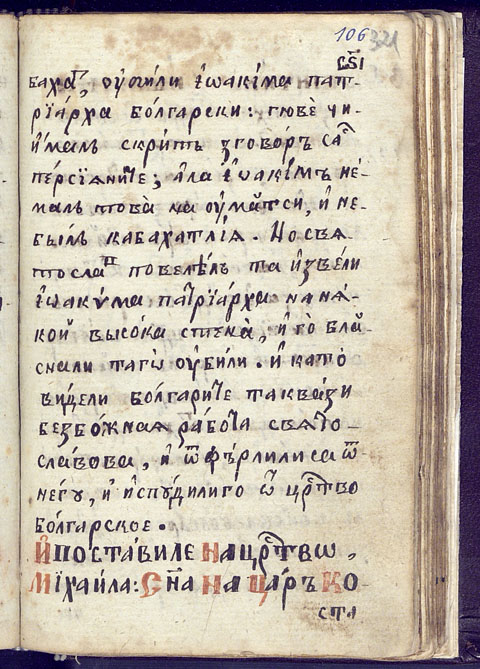 106 321
сѕ҃і
бахаⷬ, оу҆били і҆ѡакіма пат-
рїа́рха бо́лгарски: гювѐ чи-
и҆́малъ скри́тъ зговоръ саⷭ
персїѧниⷮе; а҆ла і҆ѡакімъ не́-
малъ това̀ на оу҆маⷮси, и҆ не-
бы́лъ кабахатлі́ѧ. Но свѧ-
тослаⷡ повелѣлъ та и҆зве́ли
і҆ѡакѵма паⷮрїа́рха на нѧ́-
кой высока стена̀, и҆ го̀ бла́-
снали тагѡ оу҆били. и҆ като̀
видели болгариⷮе такваѕи
безбо́жнаѧ рабоⷮа свѧⷮо-
славова, и҆ ѿфърлили са ѿ
негу, и҆ и҆спу́дилиго ѿ црⷭ҇тво
болгарское.
И҆поста́виле на црⷭ҇твѡ,
Міхаи́ла: С҃на на ца́ръ Ко-
ста